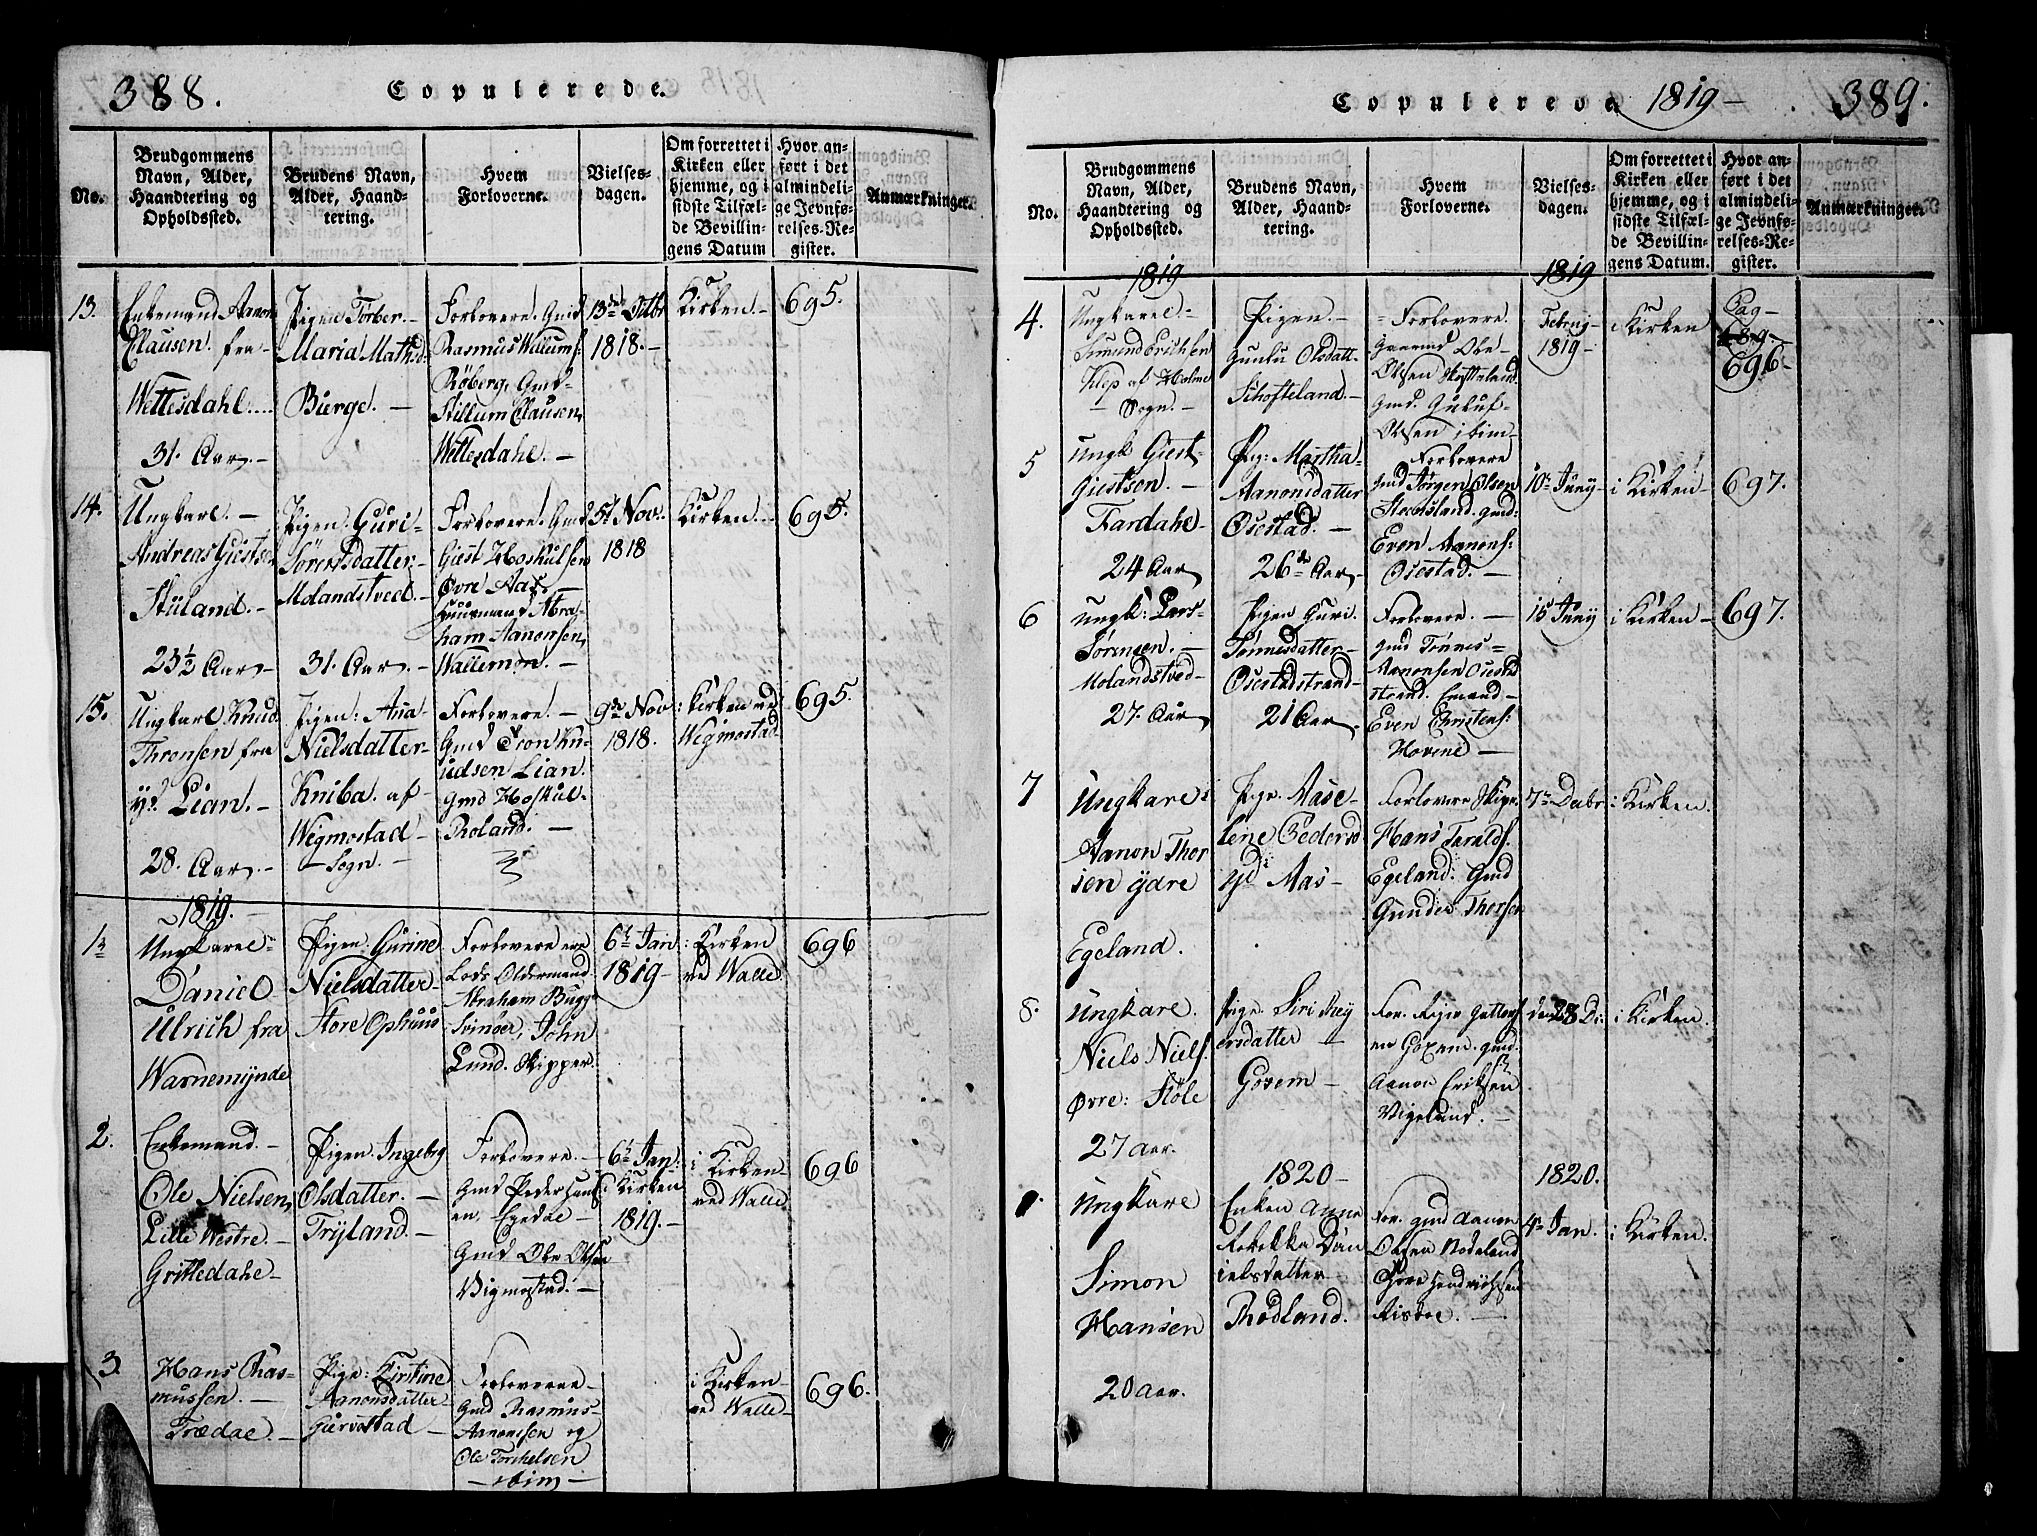 388. Copulerede.
No.
Brudgommens
Navn, Alder,
Haandtering og
Opholdssted.
Brudens Navn,
Alder, Haand-
tering.
Hvem
Forloverne.
Vielses-
dagen.
Om forrettet i
Kirken eller
hjemme, og i
sidste Tilfæl-
de Bevillin-
gens Datum
Hvor an-
ført i det
almindeli-
ge Jevnfø-
relses-Re-
gister.
Anmærkninger.
13.
Enkemand Aanon
Clausen fra
Wettesdahl
31. Aar.
Pigen Torber-
Maria Mathisd:
Bierge.
Forlovere. Gmd
Rasmus Willums:
Röberg, Gmd
Stillum Clausen
Wettesdahl.
13de Octbr
1818.
Kirken.
695.
14.
Ungkarl.
Andreas Giestsen
Stüland.
23½ Aar
Pigen Guri
Sörensdatter
Molandstved.
31. Aar.
Forlovere. Gmd
Giest Hoskulsen
Øvre Aas
Huusmand Abra-
ham Aanonsen
Wallemon.
5t Nov.
1818
Kirken.
695.
15.
Ungkarl Knud
Thronsen fra
Lian.
28. Aar.
Pigen: Ana
Nielsdatter
Kniba af
Wegmostad
Sogn.
Forlovere.
Gmd Tron Kn-
udsen Lian.
Gmd Hoskul
Roland.
9de Nov
1818.
Kirken ved
Wigmostad
695.
1819.
1
Ungkarl
Daniel
Ulrich fra
Warnemynde
Pigen Gurine
Nielsdatter
Store Ophuus
Forlovere ere
Lods Oldermand
Abraham Bugge
Svinöer, John
Lund. Skipper.
6t Jan
1819
Kirken
ved Walle
696
2.
Enkemand.
Ole Nielsen
Lille Westre.
Grittedahl
Pigen Ingeborg
Olsdatter.
Tryland.
Forlovere.
Gmd Peder Hans
en, Egedal
Gmd Ole Olsen
Vigmostad.
6t Jan.
Kirken
1819.
i Kirken
ved Walle
696
3.
Hans Ras-
mussen.
Trædal.
Pige: Kirstine
Aanonsdatter
Gurvostad
Forlovere
Gmd Rasmus
Aanonsen og
Ole Torkelsen
ibim
i Kirken
ved Walle
696.
Copulerede 1819 389.
No.
Brudgommens
Navn, Alder,
Haandtering og
Opholdssted.
Brudens Navn,
Alder, Haand-
tering.
Hvem
Forloverne.
Vielses-
dagen.
Om forrettet i
Kirken eller
hjemme, og i
sidste Tilfæl-
de Bevillin-
gens Datum.
Hvor an-
ført i det
almindeli-
ge Jevnfø-
relses-Re-
gister.
Anmærkninger.
1819
1819
4.
Ungkarl
Simund Erichsen
Klep af Holme
Sogn.
Pigen.
Gunlu Olsdatt
Schofteland.
Forlovere.
Ole
Olsen Skofteland
Gmd. Guluf
Olsen ibim
Februj
1819
i Kirken
Pag
689
696
5
Ungk Giest
Giestsen.
Fardahl
24 Aar
Pig: Martha
Aanonsdatter
Osestad.
26 Aar
Forlovere
Gmd Jörgen Olsen
Stedsland. gmd:
Even Aanons:
Osestad.
10 Juny
i Kirken
697.
6
Ungk: Lars
Sörensen.
Molandstved
27. Aar
Pigen Guri
Tönnesdatter
Osestadstrand
21 Aar
Forlovere.
gmd Tönnes
Aanonsen Osestad
strand.
Even Christens:
Hovene
15 Juny
i Kirken
697.
7
Ungkarl:
Aanon Thor
sen ydre
Egeland.
Pige. Aase
Lene Pedersd
yd Aas
Forlovere Skipr.
Hans Taralds.
Egeland. Gmd
Gunder Thorsen
7 Decbr
i Kirken.
8.
Ungkare.
Niels Niels.
Øvre: Støle
27 aar.
Pige. Siri Rey
ersdatter
Govem
For. Rejer
en gmd.
Aanon Eriksen
Vigeland.
den 28 D:
i Kirken.
1820
1820.
Ungkare
Simon
Hansen
20 aar.
Enken Anna
Rebekka Dan
ielsdatter
Rödland.
For. gmd Aanon
Olsen Rödeland
Hendrichsen
Risböe.
4 Jan.
i Kirken.